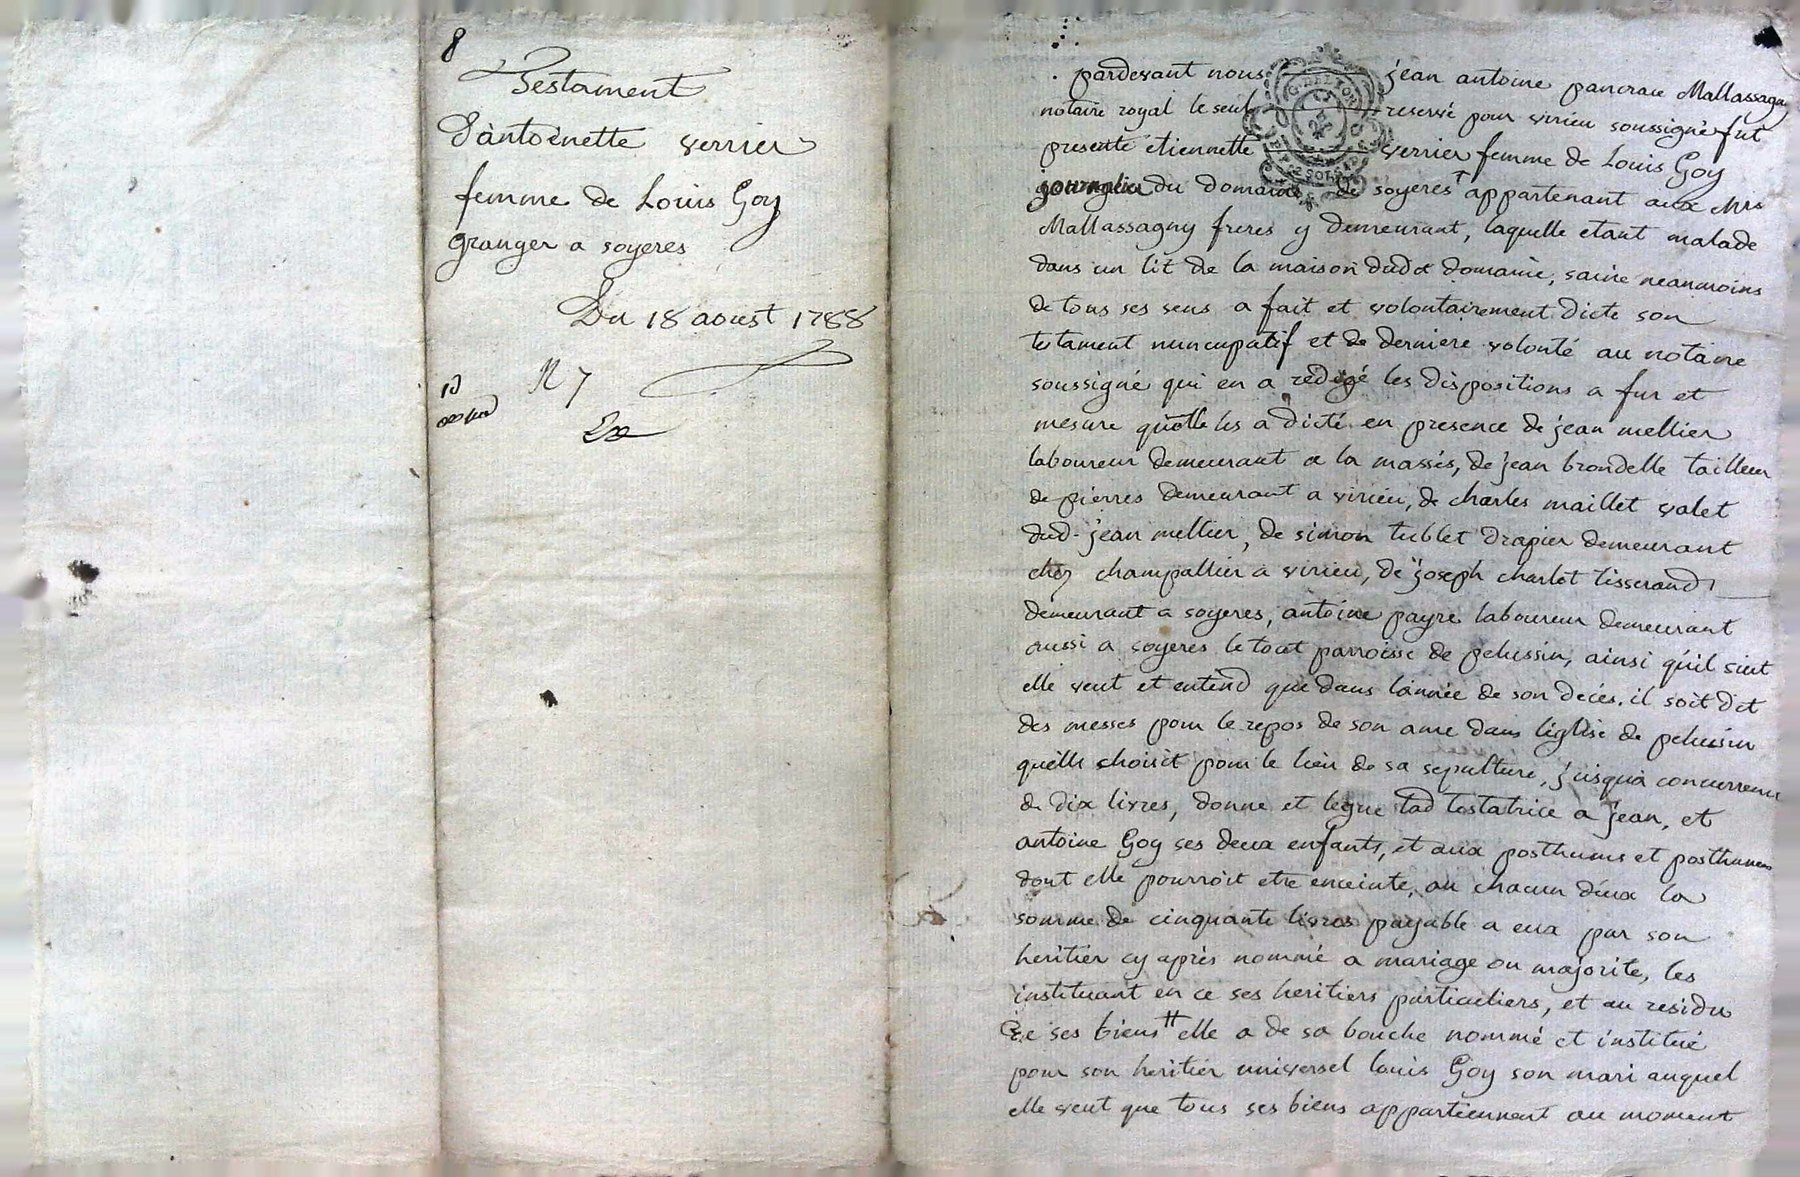 8
Testament
d'antoinette verrier
femme de Louis Goy
granger a soyeres
Du 18 aoust 1788
R 7
pardevant nous jean antoine pancrace Mallassagny
notaire royal le seul reservé pour virieu soussigné fut
presente etiennette verrier femme de Louis Goy
du domaine de soyeres appartenant aux Mrs
Mallassagny freres y demeurant, laquelle etant malade
dans un lit de la maison dudt domaine, saine neanmoins
de tous ses sens a fait et volontairement dicte son
testament nuncupatif et de derniere volonté au notaire
soussigné qui en a redigé les dispositions a fur et
mesure qu'elle les a dicté en presence de jean mellier
laboureur demeurant a la massés, de jean brondelle tailleur
de pierres demeurant a virieu, de charles maillet valet
dud. jean mellier, de simon tublet drapier demeurant
chez champallier a virieu, de joseph charlet tisserand
demeurant a soyeres, antoine payre laboureur demeurant
aussi a soyeres le tout parroisse de pelussin, ainsi qu'il suit
elle veut et entend que dans l'année de son decés. il soit dit
des messes pour le repos de son ame dans l'église de pelussin
qu'elle choisit pour le lieu de sa sepulture, jusqu'a concurrence
de dix livres, donne et legue lad testatrice a jean, et
antoine Goy ses deux enfants, et aux posthumes et posthumes
dont elle pourroit etre enceinte, au chacun d'eux la
somme de cinquante livres payable a eux par son
heritier cy après nommé a mariage ou majorité, les
instituant en ce ses heritiers particuliers, et au residu
de ses biens # elle a de sa bouche nommé et institué
pour son heritier universel louis Goy son mari auquel
elle veut que tous ses biens appartiennent au moment